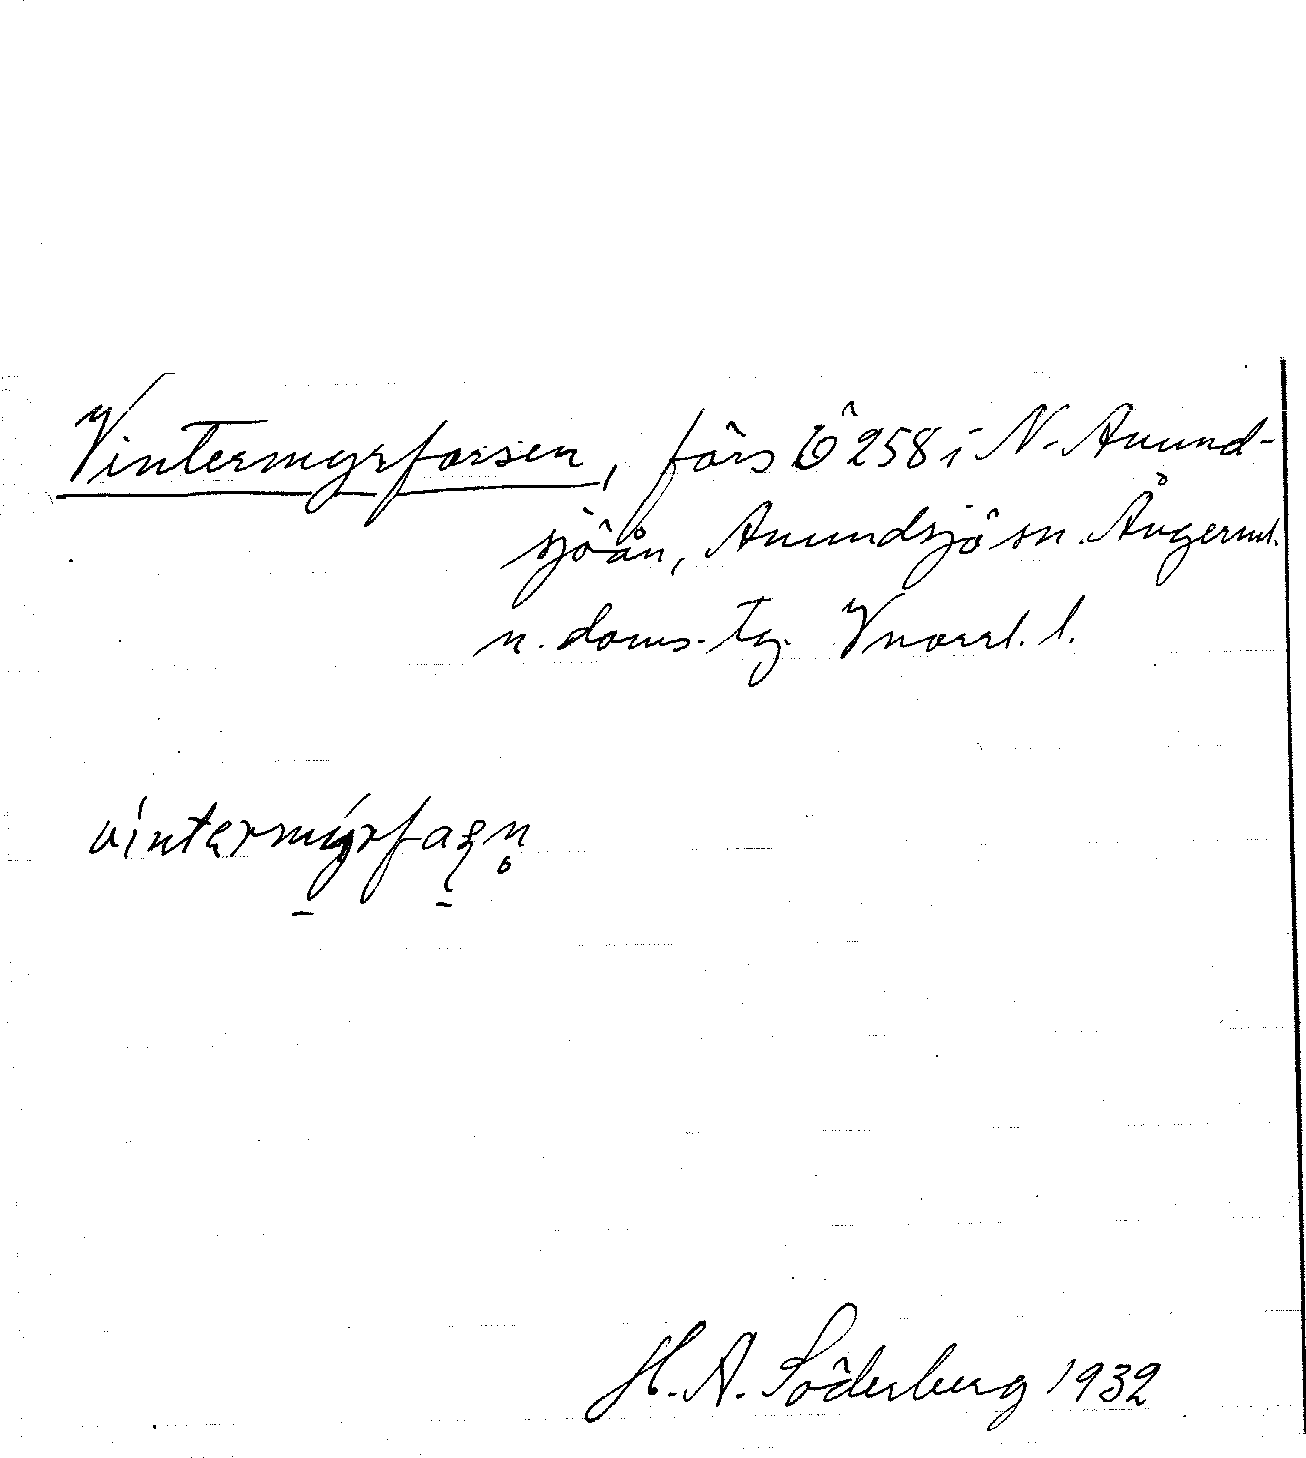 Vintermyrforsen, fôrs Ô 258 i N. Anund-
sjöån, Anundsjö sn. Ångerml.
n. doms. tg. Vnorrl. l.
H. A. Söderberg 1932